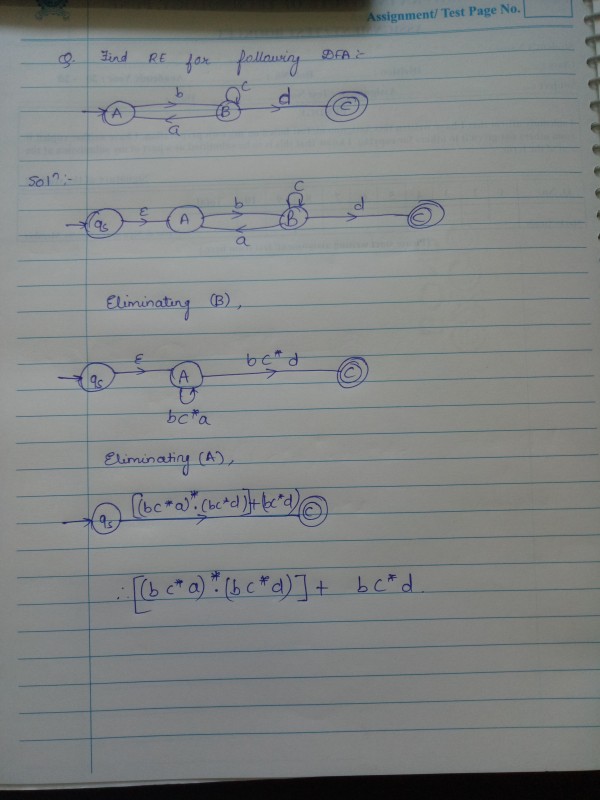 Assignment/ Test Page No.
Q. Find RE for following DFA:-
A b a B c d C
Solⁿ:-
qs ε A b a B c d C
Eliminating (B),
qs ε A bc*d C
bc*a
Eliminating (A),
qs [(bc*a)*.(bc*d)]+(bc*d) C
∴ [(bc*a)*.(bc*d)] + bc*d.